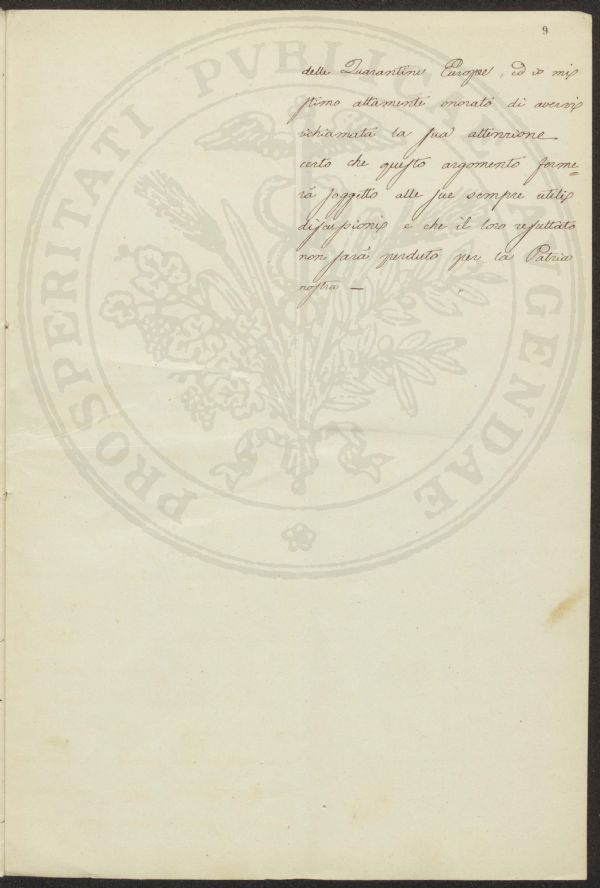 9
delle Quarantine Europee, ed io mi
stimo altamente onorato di avervi
richiamata la sua attenzione
certo che questo argomento forme=
rà soggetto alle sue sempre utili
discussioni e che il loro resultato
non sarà perduto per la Patria
nostra —
PROSPERITATI PVBLICAE AVGENDAE